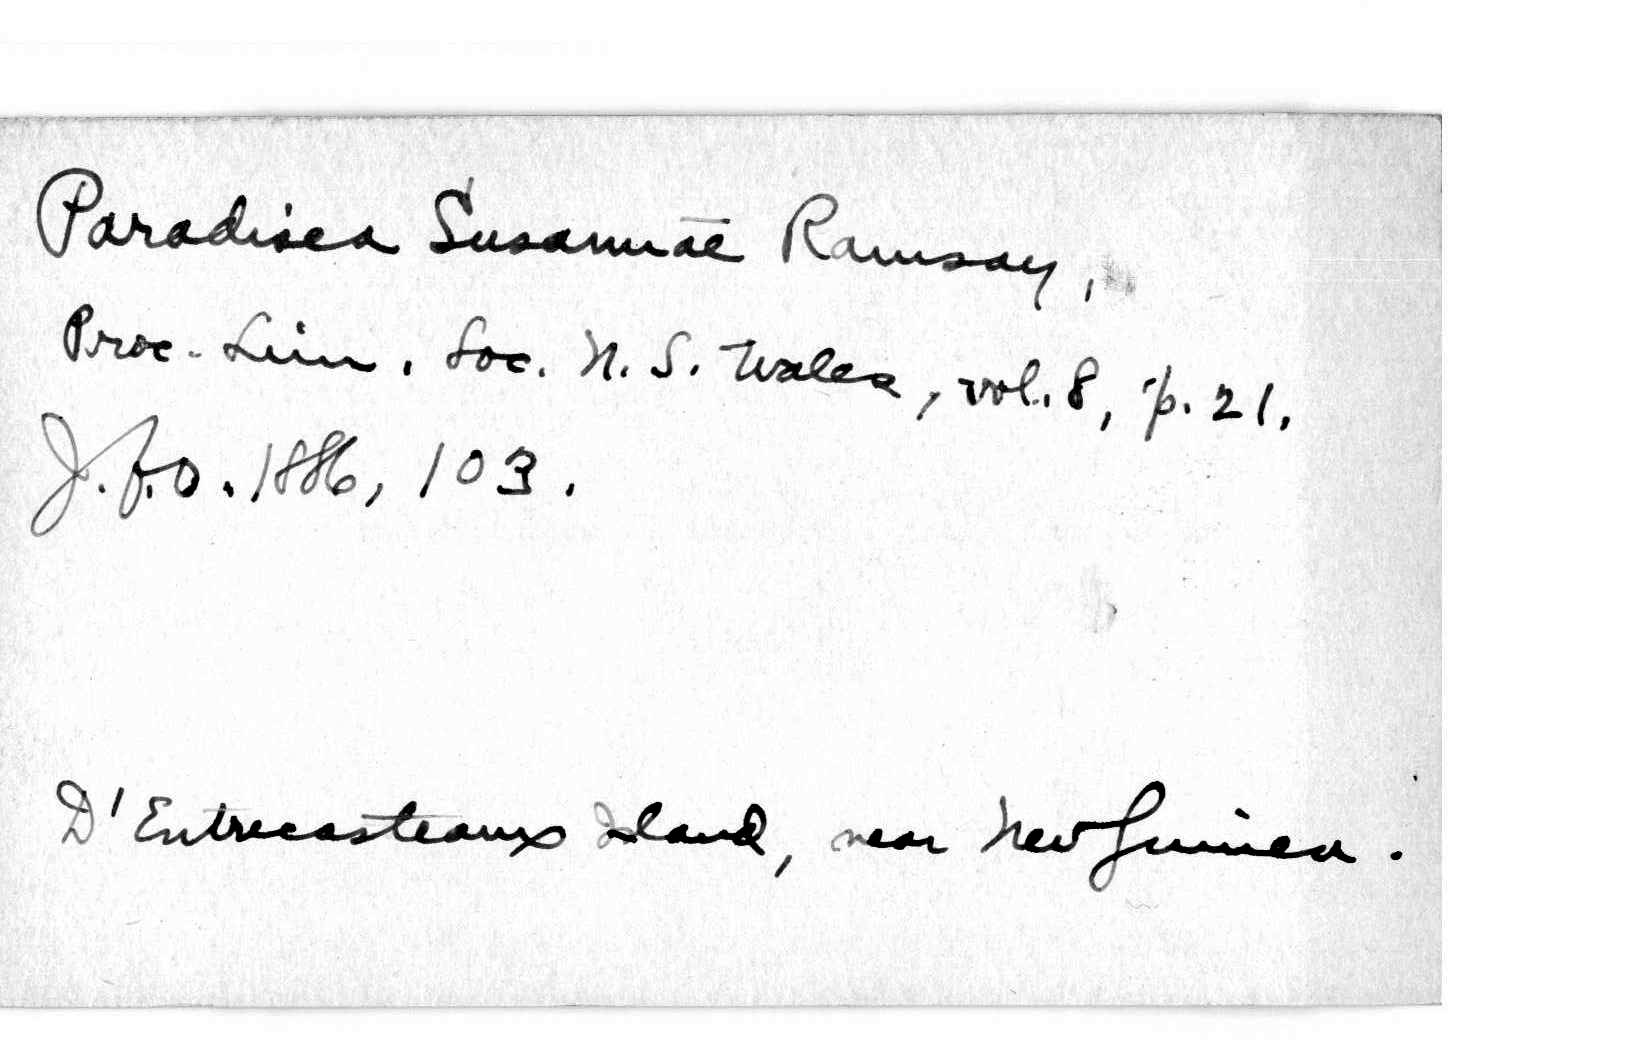 Paradisea Susannae Ramsay,
Proc. Linn. Soc. N. S. Wales, vol. 8, p. 21.
J. f. O. 1886, 103.
D'Entrecasteaux Island, near New Guinea.